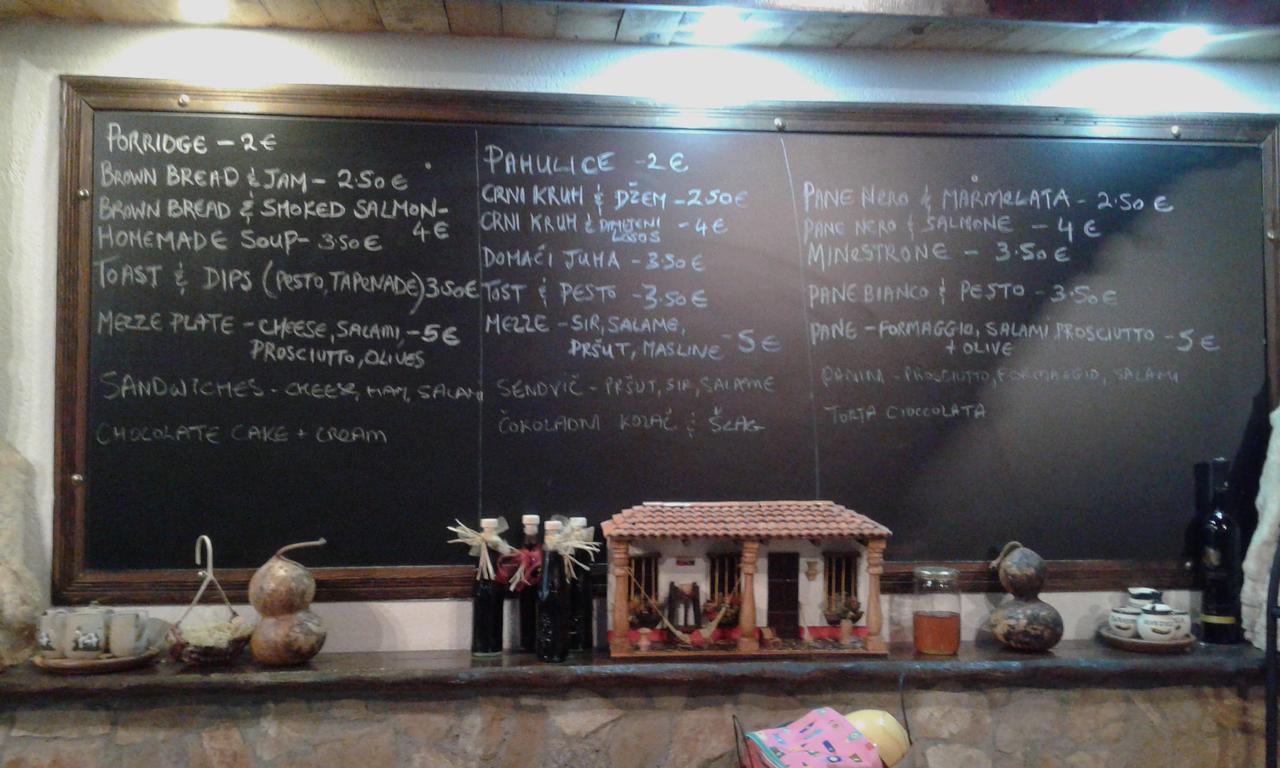 PORRIDGE - 2€
BROWN BREAD & JAM - 2.50€
BROWN BREAD & SMOKED SALMON-
4€
HOMEMADE SOUP- 3.50€
TOAST & DIPS (PESTO, TAPENADE) 3.50€
MEZZE PLATE - CHEESE, SALAMI, - 5€
PROSCIUTTO, OLIVES
SANDWICHES - CHEESE, HAM, SALAMI
CHOCOLATE CAKE + CREAM
PAHULICE - 2€
CRNI KRUH & DŽEM - 2.50€
CRNI KRUH & DIMLJENI - 4€
LOSOS
DOMAĆI JUHA - 3.50€
TOST & PESTO - 3.50€
MEZZE - SIR, SALAME,
PRŠUT, MASLINE - 5€
SENDVIČ - PRŠUT, SIR, SALAME
ČOKOLADNI KOLAČ & ŠLAG
PANE NERO & MARMELATA - 2.50€
PANE NERO & SALMONE - 4€
MINESTRONE - 3.50€
PANE BIANCO & PESTO - 3.50€
PANE - FORMAGGIO, SALAMI, PROSCIUTTO - 5€
+ OLIVE
PANINI - PROSCIUTTO, FORMAGGIO, SALAMI
TORTA CIOCCOLATA